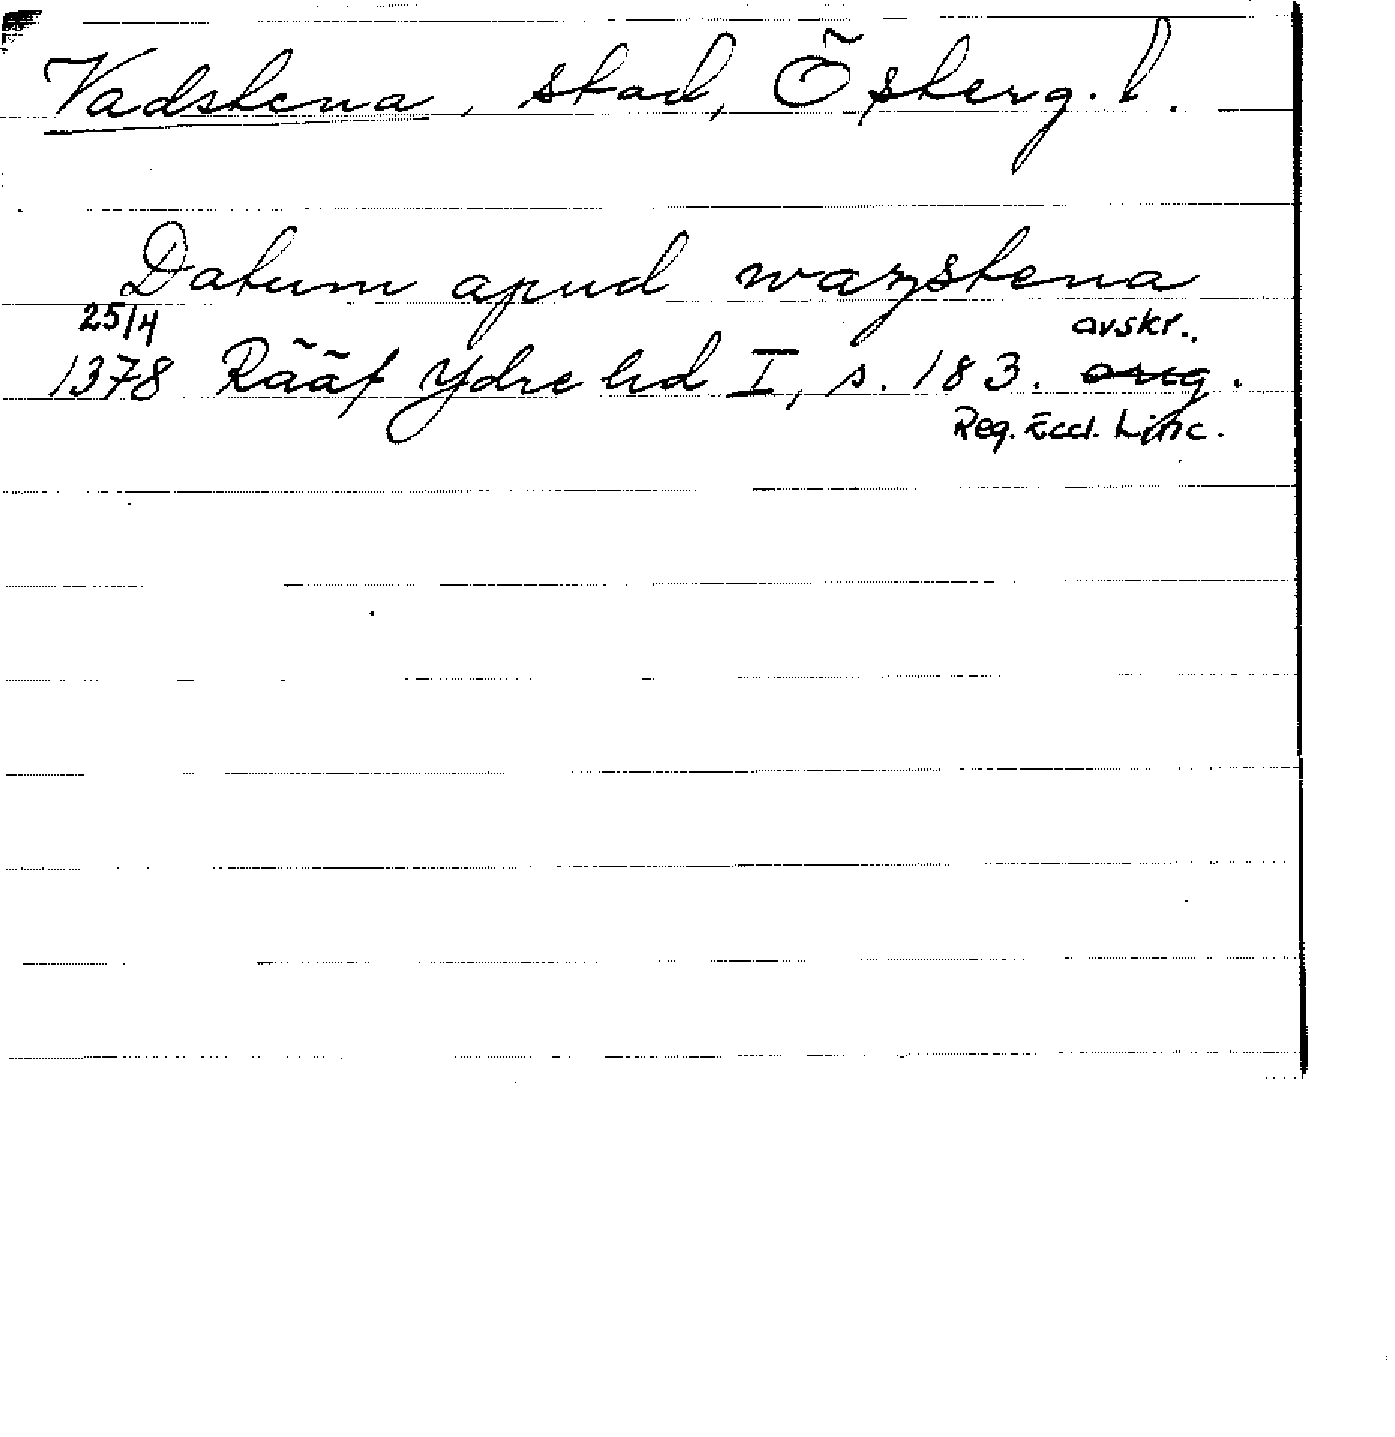 Vadstena, stad, Österg. l.
Datum apud wazstena
25/4
avskr.
1378 Rääf Ydre hd I, s. 183. orig.
Reg. Eccl. Linc.